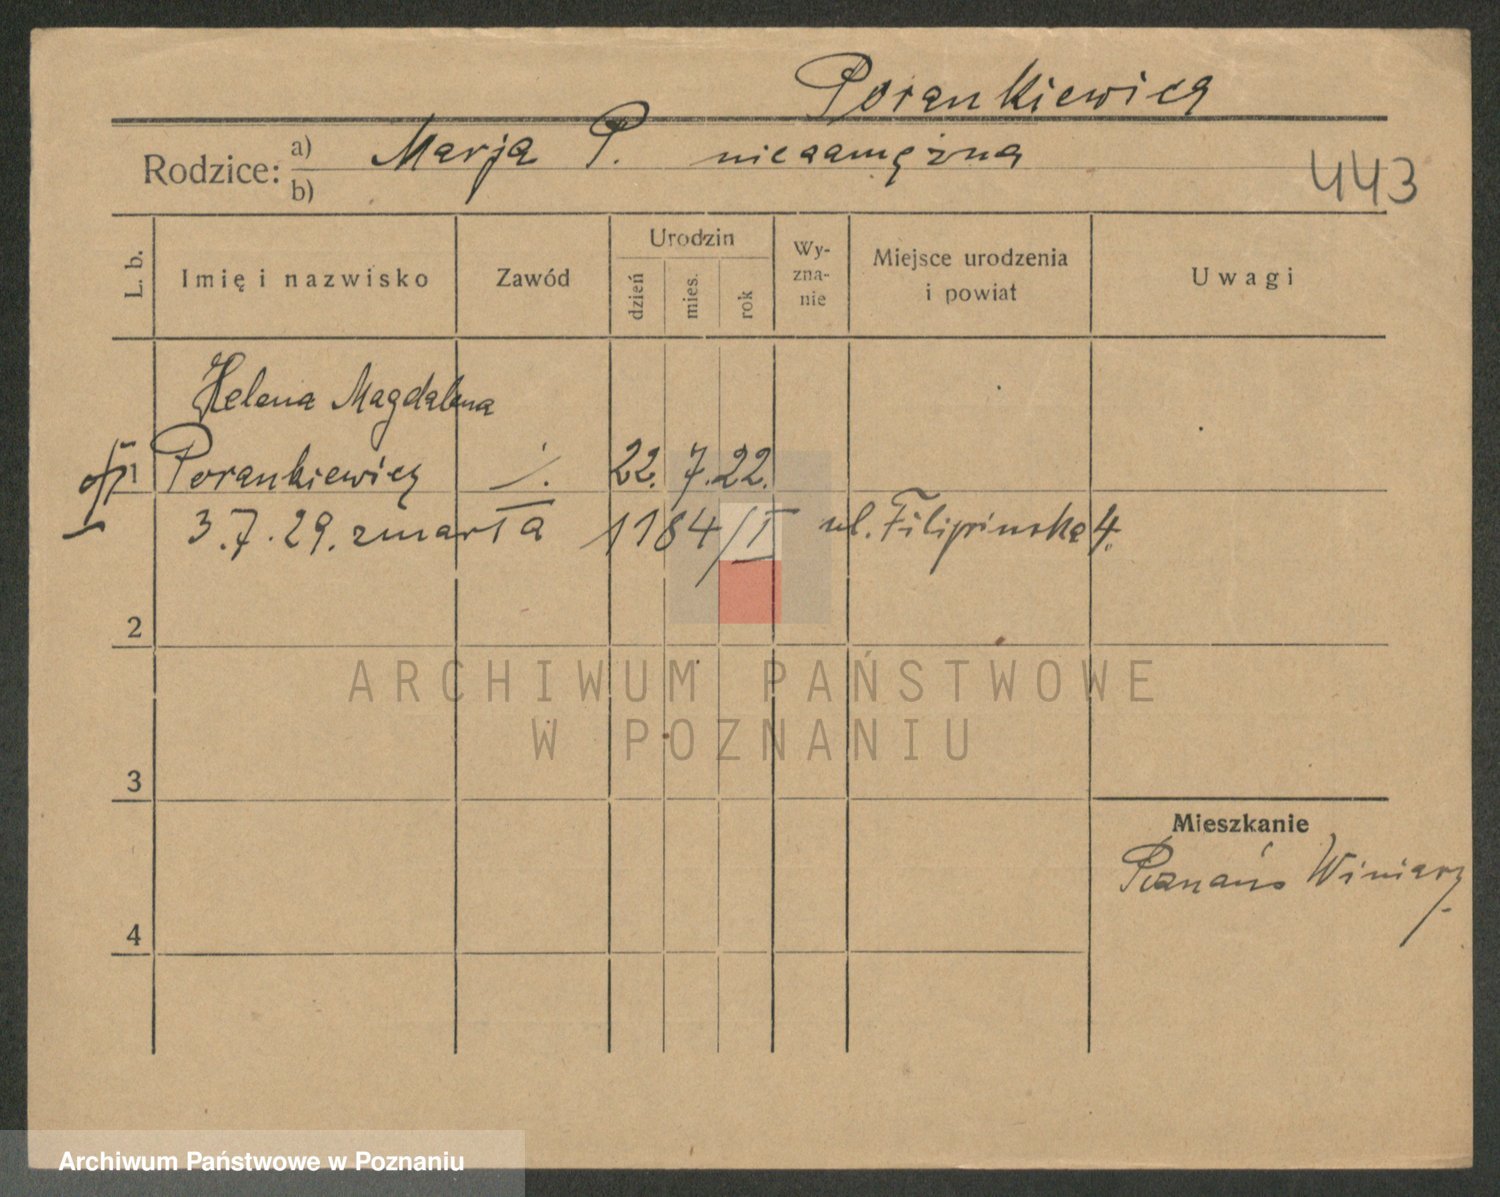 Porankiewicz
Rodzice: a) Marja P. niezamężna
b)
443
L. b. Imię i nazwisko Zawód Urodzin dzień mies. rok Wy-zna-nie Miejsce urodzenia i powiat Uwagi
Helena Magdalena
1 Porankiewicz 22. 7. 22.
3.7.29. zmarła 1184/I ul. Filipińska 4.
2
3
Mieszkanie
Poznań Winiary
4
ARCHIWUM PAŃSTWOWE
W POZNANIU
Archiwum Państwowe w Poznaniu